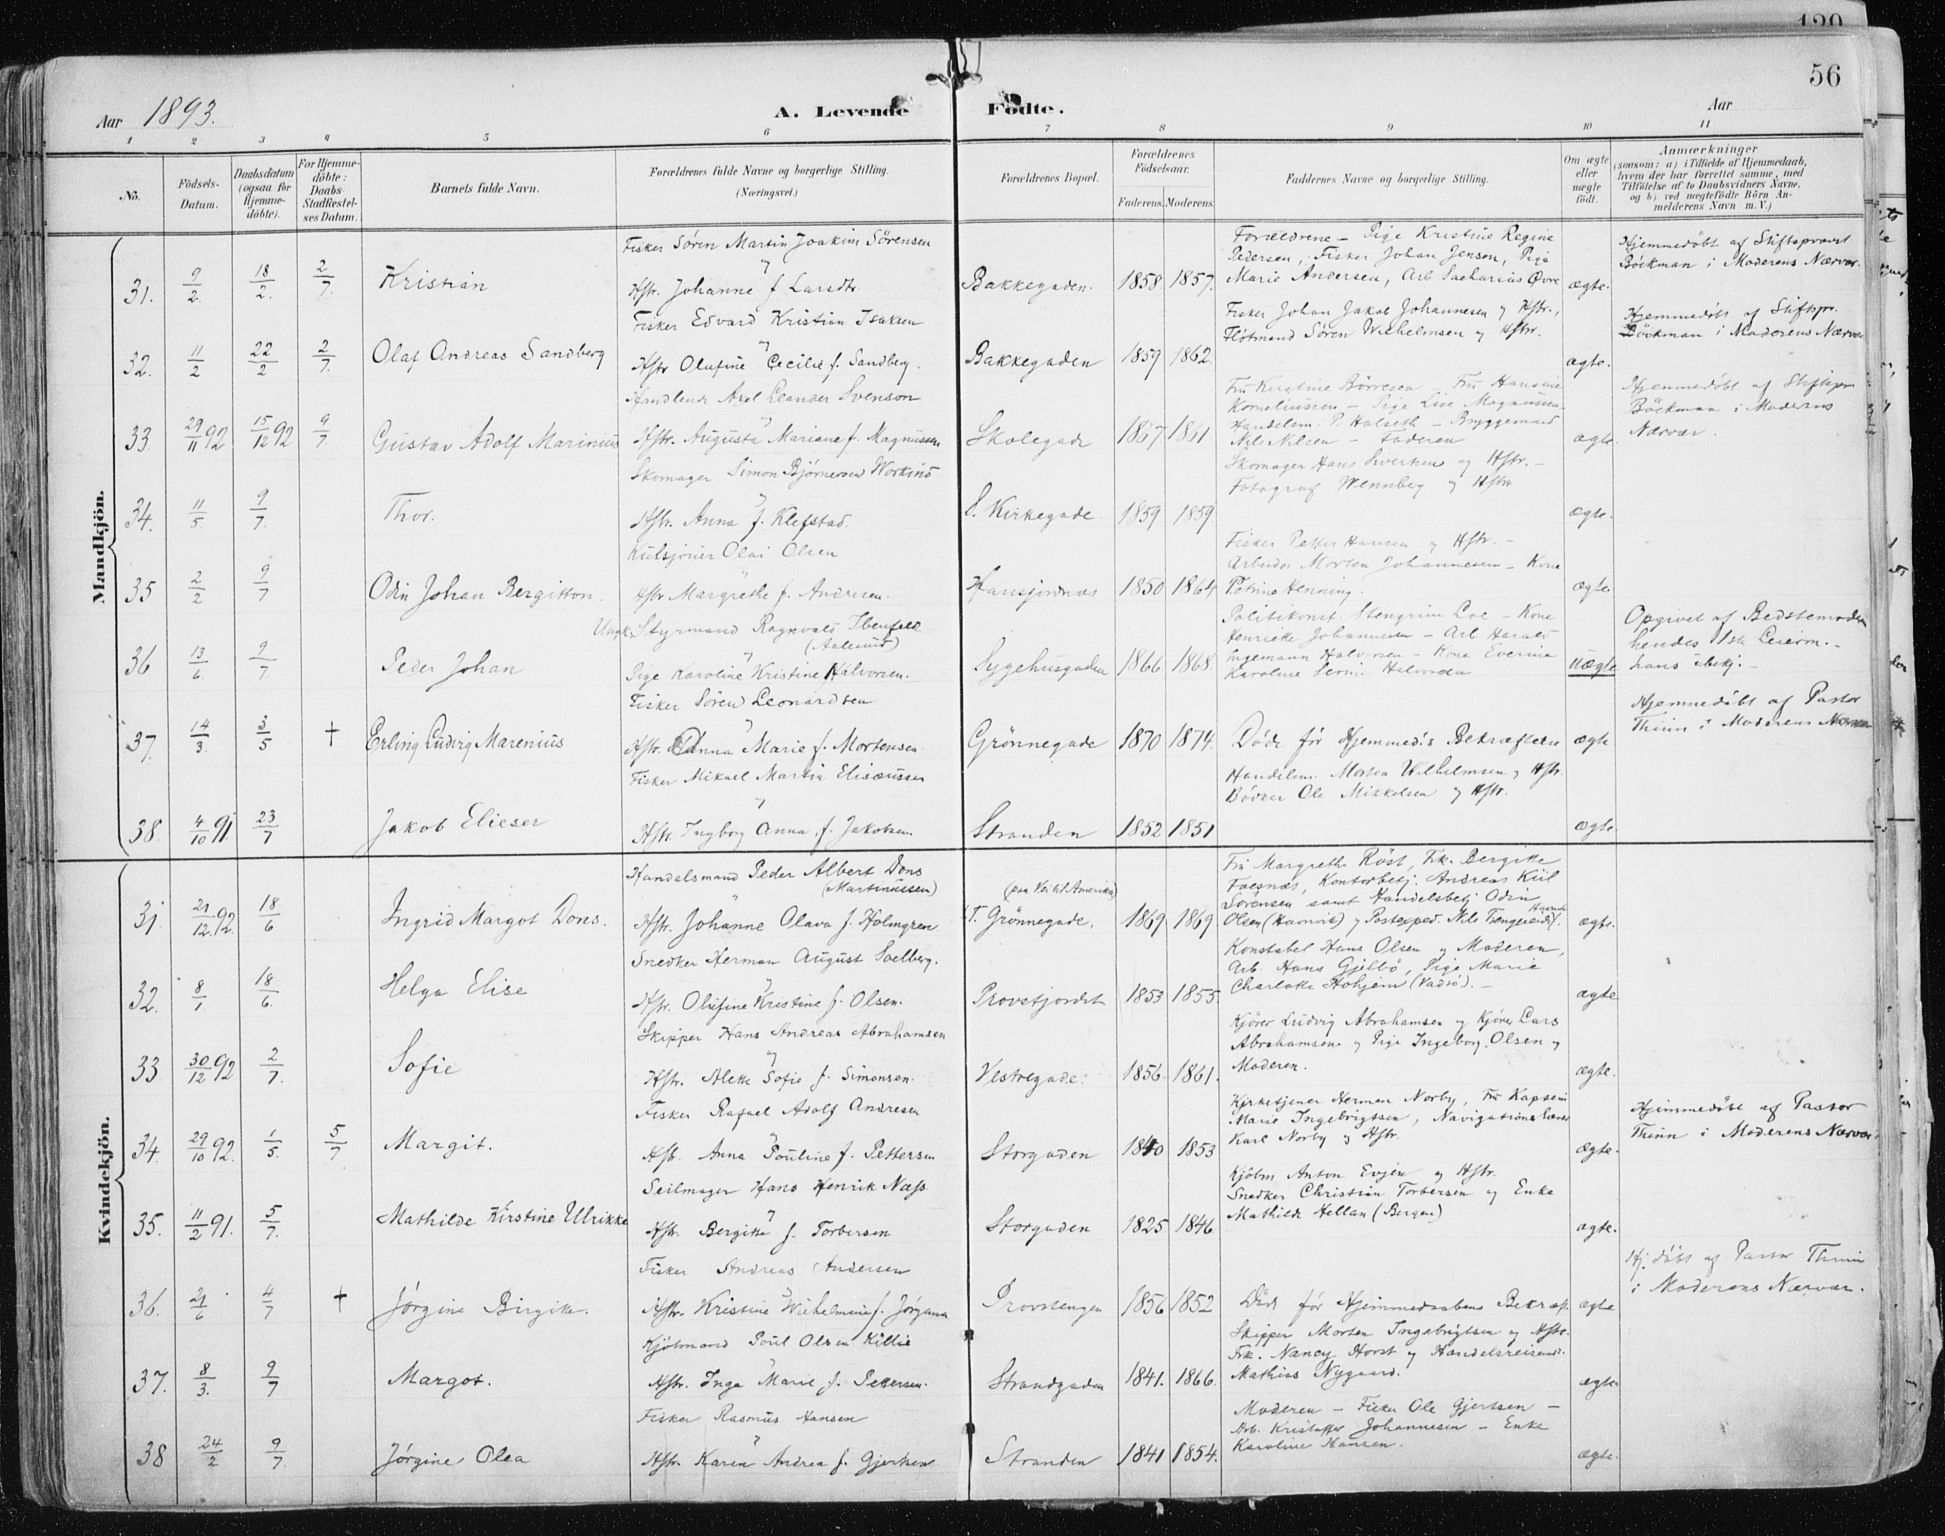 120
56
Aar 1893. A. Levende Fødte. Aar
1 2 3 4 5 6 7 8 9 10 11
No. Födsels-Datum. Daabsdatum (ogsaa for Hjemme-döbte). For Hjemme-döbte: Daabs-Stadfæstel-ses Datum. Barnets fulde Navn. Forældrenes fulde Navne og borgerlige Stilling. (Næringsvei.) Forældrenes Bopæl. Forældrenes Födselsaar. Faderens. Moderens. Faddernes Navne og borgerlige Stilling. Om ægte eller uægte födt. Anmærkninger (saasom: a) i Tilfælde af Hjemmedaab, hvem der har forrettet samme, med Tilföielse af to Daabsvidners Navne, og b) ved uægtefödte Börn An-melderens Navn m. V.)
Mandkjön.
Fisker Sören Martin Joakim Sörensen
Forældrene – Pige Kristine Regine
Pedersen, Fisker Johan Jensen, Pige
Hjemmedöbt af Stiftsprovst
Böckman i Moderens Nærvær.
31. 9/2. 18/2. 2/7. Kristian Hstr. Johanne f. Larsdtr. Bakkegaden. 1858. 1857. Marie Andersen, Arb. Sacharias Övre ægte.
Fisker Edvard Kristian Isaksen
Fisker Johan Jakob Johannesen og Hstr.,
Flötmand Sören Wilhelmsen og Hstr.
Hjemmedöbt af Stiftspr.
Böckman i Moderens Nærvær
32. 11/2 22/2 2/7. Olaf Andreas Sandberg Hstr Olufine Cecilie f. Sandberg. Bakkegaden 1859 1862. ægte.
Handlende Axel Leander Svenson
Fru Kirstine Börresen – Fru Hansine
Korneliussen – Pige Lise Magnussen
Handelsm. P. Halseth – Bryggemand
Hjemmedöbt af Stiftspr
Böckman i Moderens
Nærvær.
33. 29/11 92 15/12 92 9/7 Gustav Adolf Marinius Hstr. Augusta Mariane f. Magnussen Skolegade 1867 1861 Nils Nilsen – Faderen ægte.
Skomager Simon Björnersen Workins
Skomager Hans Siverksen og Hstr. –
Fotograf Wennberg og Hstr
34. 11/5 9/7. Thor. Hstr. Anna f. Klefstad. S. Kirkegade. 1859 1859 ægte.
Kulsjouer Olai Olsen
Fisker Petter Hansen og Hstr. –
Arbeider Morten Johannesen – Kone
35 2/2 9/7 Odin Johan Bergitton. Hstr Margrethe f. Andresen. Hansjordnæs 1850 1864 Petrine Henning. ægte.
Ungk. Styrmand Ragnvald Ibenfeldt
(Aalesund)
Politikonst. Stengrim Loe – Kone
Henrikke Johannesen – Arb. Harald
Ingemann Halvorsen – Kone Everine
Opgivet af Bedstemoderen
hendes
36 13/6. 9/7 Peder Johan Pige Karoline Kristine Halvorsen. Sygehusgaden 1866 1868 uægte
Fisker Sören Leonardsen
Hjemmedöbt af Pastor
Thinn i Moderens Nærvær
37. 14/3. 3/5 † Erling Ludvig Marenius Hstr. Anna Marie f. Mortensen. Grönnegade 1870 1874. Döde för Hjemmed's Bekræftelse ægte
Fisker Mikael Martin Elisæussen
Handelsm. Morten Wilhelmsen og Hstr.
Bödker Ole Mikkelsen og Hstr.
38. 4/10 91. 23/7 Jakob Elieser Hstr. Ingborg Anna f. Jakobsen. Stranden 1852 1851 ægte
Kvindekjön.
Handelsmand Peder Albert Dons
(Martinussen)
(paa Vei til Amerika)
Fru Margrethe Röst, Frk. Bergitte
Foesnæs, Kontorbetj. Andreas Kiil
Sörensen samt Handelsbetj. Odin
31. 21/12. 92. 18/6 Ingrid Margot Dons. Hstr. Johanne Olava f. Holmgren. Grönnegade, 1869 1869 ægte.
Snedker Herman August Soelberg.
Konstabel Hans Olsen og Moderen,
Arb. Hans Gjelbö, Pige Marie
32. 8/1. 18/6. Helga Elise Hstr. Olufine Kristine f. Olsen. Provstjordet 1853 1855. Charlotte Hohjem (Vadsö). – ægte
Skipper Hans Andreas Abrahamsen
Kjörer Ludvig Abrahamsen og Kjörer Lars
Abrahamsen og Pige Ingeborg Olsen og
33 30/12 92 2/7. Sofie Hstr. Alette Sofie f. Simonsen. Vestregade. 1856 1861. Moderen. ægte.
Fisker Rafael Adolf Andresen
Kirketjener Herman Norby, Fru Kaptein
Marie Ingebrigtsen, Navigationslærer
Hjemmedöbt af Pastor
Thinn i Moderens Nærvær
34. 29/10 92. 1/5. 5/7. Margit. Hstr. Anna Pouline f. Pettersen Storgaden 1840 1853 Karl Norby og Hstr. ægte.
Seilmager Hans Henrik Næss
Kjöbm Anton Evjen og Hstr.
Snedker Christian Torbersen og Enke
35. 11/2 91. 5/7. Mathilde Kirstine Ulrikke Hstr. Bergitte f. Torbersen Storgaden 1825 1846 Mathilde Hellan (Bergen) ægte.
Fisker Andreas Andersen
Hj. döbt af Pastor Thinn
i Moderens Nærvær.
36. 21/6 4/7 † Jörgine Birgitte. Hstr. Kristine Wilhelmine f. Jörgensen Provstengen 1856 1852 Död för Hjemmedaabens Bekræft. ægte
Kjöbmand Poul Olsen Killie
Skipper Morten Ingebrigtsen og Hstr.
Frk. Nancy Horst og Handelsreisende
37. 8/3. 9/7 Margot. Hstr. Inga Marie f. Pettersen. Strandgaden 1841. 1866. Mathias Nygaard. ægte.
Fisker Rasmus Hansen
Moderen – Fisker Ole Gjertsen –
Arb. Kristoffer Johannesen – Enke
38 24/2 9/7. Jörgine Olea Hstr. Karen Andrea f. Gjertsen Stranden 1841 1854. Karoline Hansen. ægte.